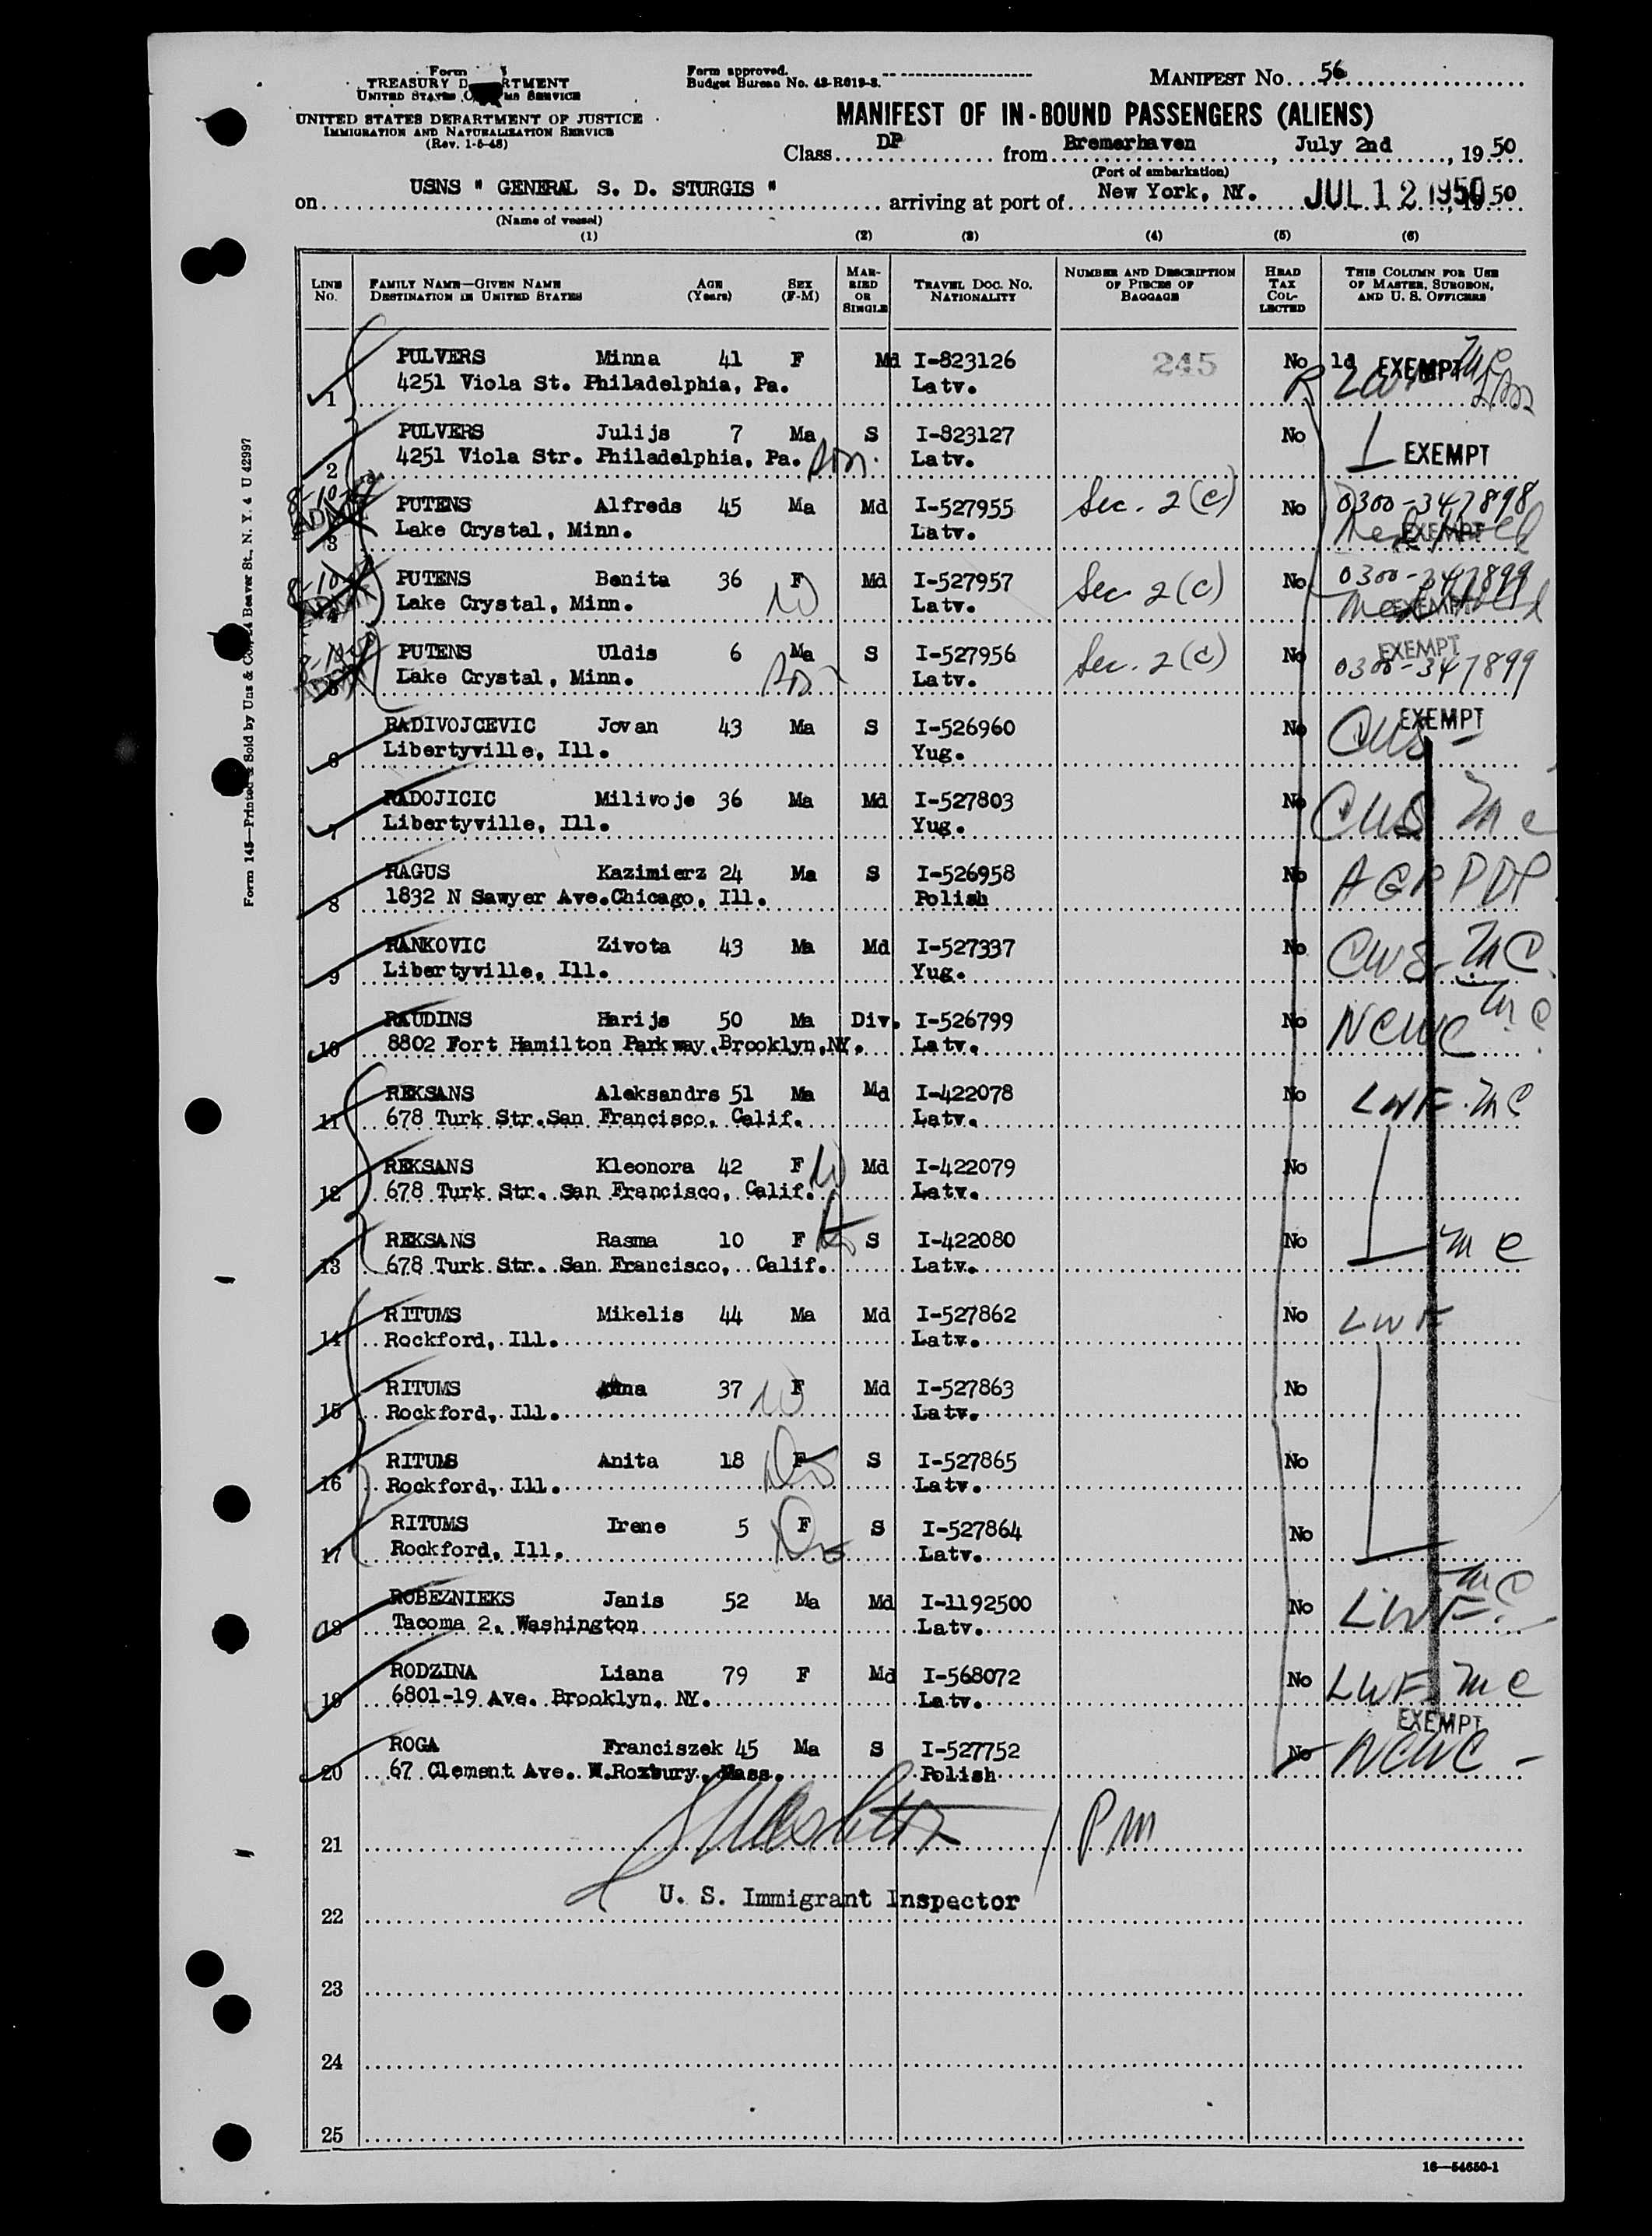 Form
TREASURY D RTMENT
UNITED STATES MS SERVICE
UNITED STATES DEPARTMENT OF JUSTICE
IMMIGRATION AND NATURALIZATION SERVICE
(Rev. 1-5-48)
Form approved.
Budget Bureau No. 43-R019-3.
MANIFEST NO. 56
MANIFEST OF IN-BOUND PASSENGERS (ALIENS)
Class DP from Bremerhaven, July 2nd, 19 50
(Port of embarkation)
on USNS " GENERAL S. D. STURGIS " arriving at port of New York, NY. JUL 12 1950, 19 50
(Name of vessel)
(1) (2) (3) (4) (5) (6)
LINE NO. FAMILY NAME—GIVEN NAME DESTINATION IN UNITED STATES AGE (Years) SEX (F-M) MARRIED OR SINGLE TRAVEL DOC. NO. NATIONALITY NUMBER AND DESCRIPTION OF PIECES OF BAGGAGE HEAD TAX COLLECTED THIS COLUMN FOR USE OF MASTER, SURGEON, AND U. S. OFFICERS
PULVERS Minna 41 F Md I-823126 245 No 1d EXEMPT
1 4251 Viola St. Philadelphia, Pa. Latv.
PULVERS Julijs 7 Ma S I-823127 No EXEMPT
2 4251 Viola Str. Philadelphia, Pa. son. Latv.
PUTENS Alfreds 45 Ma Md I-527955 Sec. 2(c) No 0300-347898
3 Lake Crystal, Minn. Latv. EXEMPT
PUTENS Benita 36 F Md I-527957 Sec. 2(c) No 0300-347899
4 Lake Crystal, Minn. W Latv. EXEMPT
PUTENS Uldis 6 Ma S I-527956 Sec. 2(c) No EXEMPT
5 Lake Crystal, Minn. son Latv. 0300-347899
RADIVOJCEVIC Jovan 43 Ma S I-526960 No EXEMPT
6 Libertyville, Ill. Yug. CWS
RADOJICIC Milivoje 36 Ma Md I-527803 No CWS MC
7 Libertyville, Ill. Yug.
RAGUS Kazimierz 24 Ma S I-526958 No
8 1832 N Sawyer Ave.Chicago, Ill. Polish
RANKOVIC Zivota 43 Ma Md I-527337 No CWS MC
9 Libertyville, Ill. Yug.
RAUDINS Harijs 50 Ma Div. I-526799 No NCWC MC
10 8802 Fort Hamilton Parkway,Brooklyn,NY. Latv.
REKSANS Aleksandrs 51 Ma Md I-422078 No LWF MC
11 678 Turk Str.San Francisco, Calif. Latv.
REKSANS Kleonora 42 F W Md I-422079 No
12 678 Turk Str. San Francisco, Calif. Latv.
REKSANS Rasma 10 F S I-422080 No MC
13 678 Turk Str. San Francisco, Calif. Latv.
RITUMS Mikelis 44 Ma Md I-527862 No LWF
14 Rockford, Ill. Latv.
RITUMS Anna 37 F W Md I-527863 No
15 Rockford, Ill. Latv.
RITUMS Anita 18 F S I-527865 No
16 Rockford, Ill. Latv.
RITUMS Irene 5 F S I-527864 No
17 Rockford, Ill. Latv.
ROBEZNIEKS Janis 52 Ma Md I-1192500 No LWF MC
18 Tacoma 2, Washington Latv.
RODZINA Liana 79 F Md I-568072 No LWF MC
19 6801-19 Ave. Brooklyn, NY. Latv. EXEMPT
ROGA Franciszek 45 Ma S I-527752 No NCWC
20 67 Clement Ave. W.Roxbury, Mass. Polish
21 PM
U. S. Immigrant Inspector
22
23
24
25
16—54650-1
Form 145—Printed & Sold by Unz & Co., 24 Beaver St., N. Y. 4 U 42997